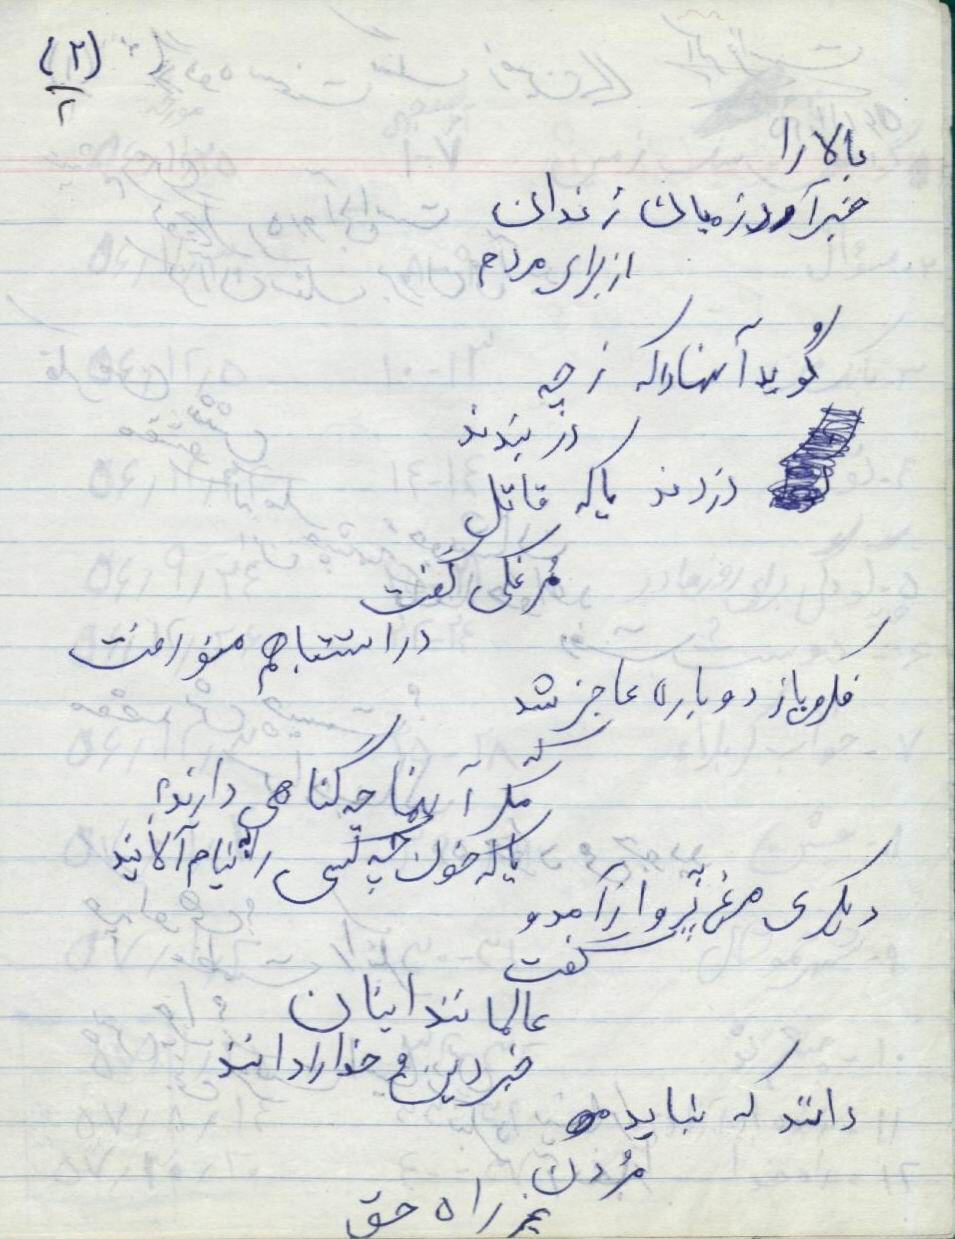 (۲)
۲
بالا را
خبر آرد ز میان زندان
از برای مردم
گوید آنها را که ز چه
در بندند
دزدند یا که قاتل
مرغکی گفت
در اشتباهم من و رفت
فکر پرواز دوباره عاجز شد
که
مگر آنها چه گناهی دارند؟
یا که خون چه کسی را به نیام آلایند
دیگری مرغ به پرواز آمد و
گفت
عالمانند اینان
خبر دین و خدا را دانند
دانند که نباید
مُردن
بجز راه حق